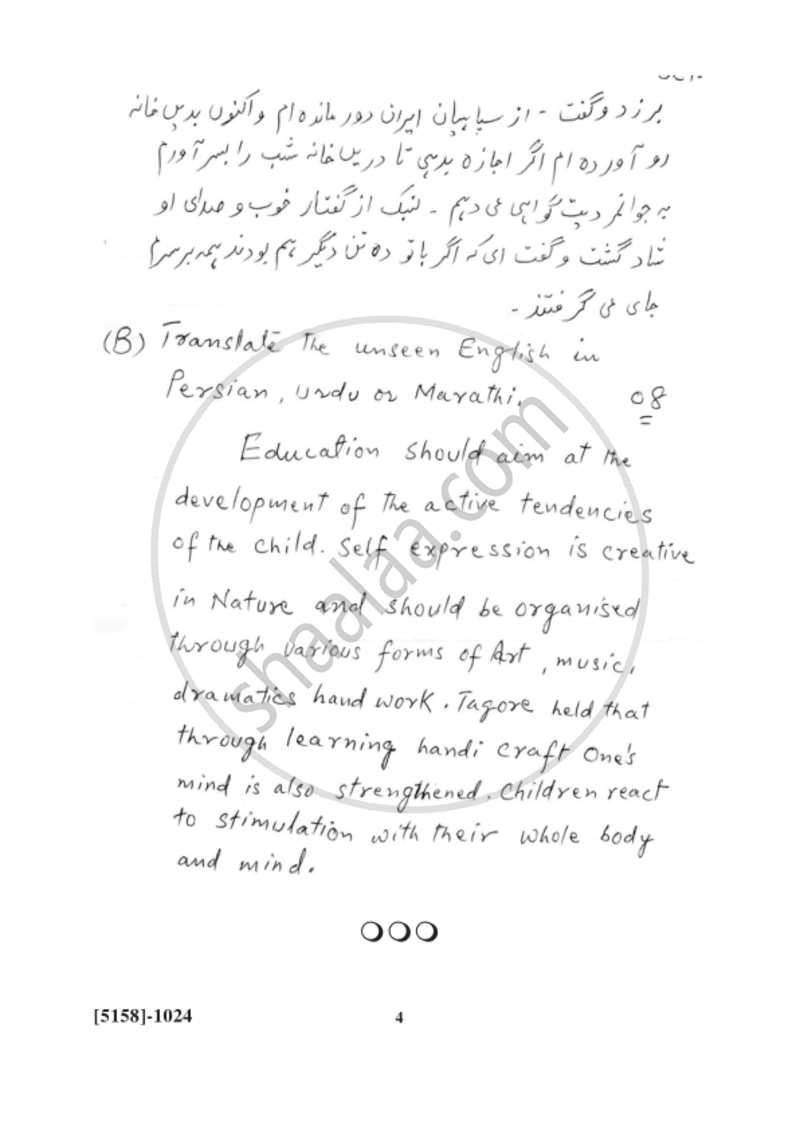 بر زد و گفت - از سپاہیان ایران دور ماندہ ام و اکنوں بدیں خانہ
رو آوردہ ام اگر اجازہ بدہی تا دریں خانہ شب را بسر آورم
بہ جوانمردیت گواہی می دہم - لنبک از گفتار خوب و صدای او
شاد گشت و گفت ای کہ اگر باتو دہ تن دیگر ہم بودند ہمہ بر سرم
جای می گرفتند -
(B) Translate The unseen English in
Persian, Urdu or Marathi. 08
Education should aim at the
development of the active tendencies
of the child. Self expression is creative
in Nature and should be organised
through various forms of Art, music,
dramatics hand work. Tagore held that
through learning handi craft One's
mind is also strengthened. Children react
to stimulation with their whole body
and mind.
shaalaa.com
[5158]-1024 4